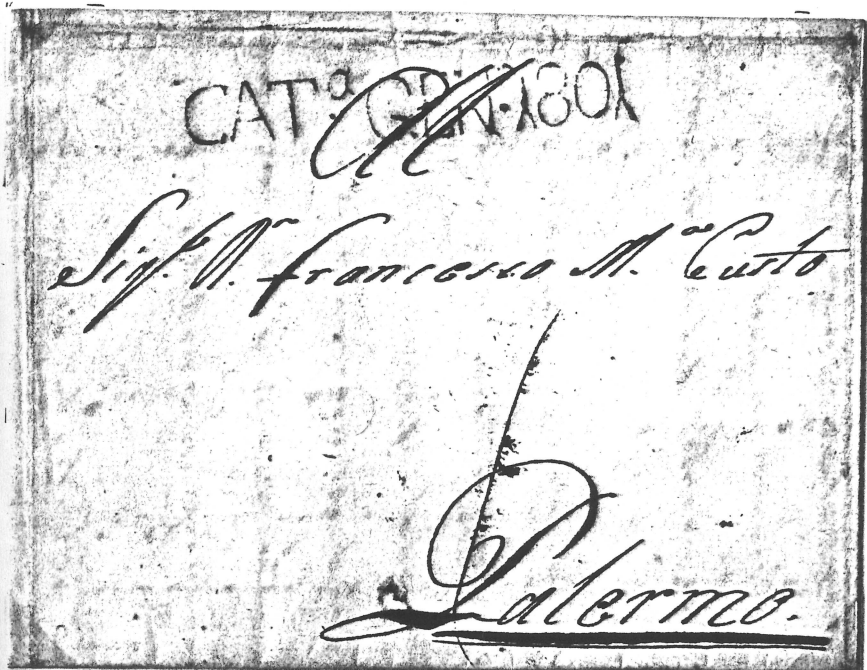 CATª GEN·1801
Al
Sig.r D.n Francesco M.a Custo
Palermo.